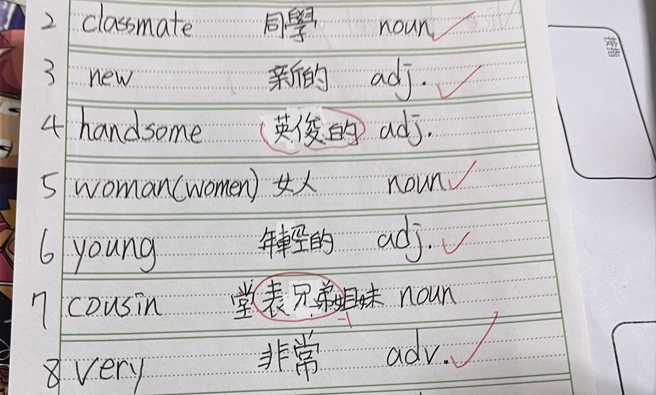 2 classmate 同學 noun
3 new 新的 adj.
4 handsome 英俊的 adj.
5 woman(women) 女人 noun
6 young 年輕的 adj.
7 cousin 堂表兄弟姐妹 noun
8 very 非常 adv.